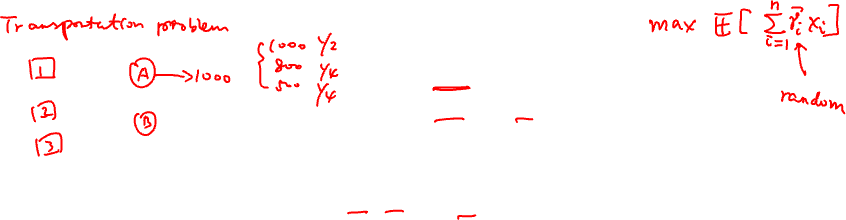 Transportation problem
1 A → 1000 { 1000 1/2
800 1/4
500 1/4
2 B
3
max E[ ∑_{i=1}^{n} r̃_i x_i ]
random